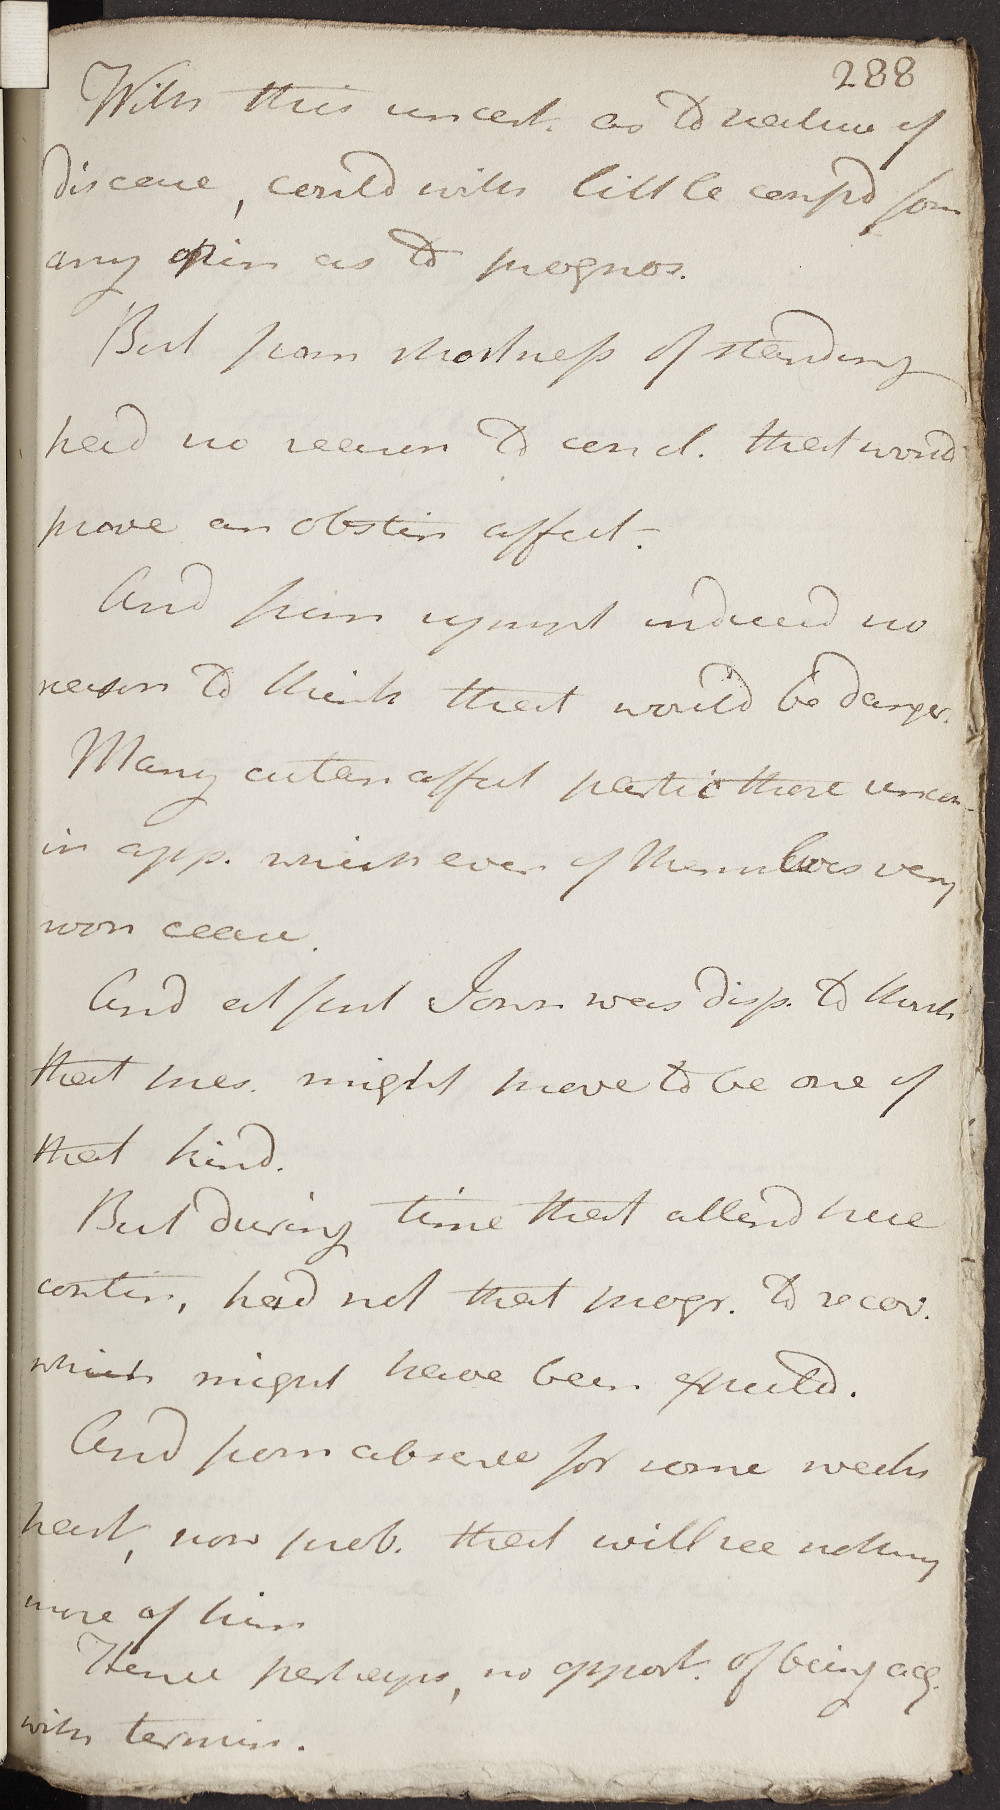 288
With this uncert. as to nature of
disease, could with little confid form
any opin as to prognos.
But from shortness of standing
had no reason to concl. that would
prove an obstin affect.
And from sympt indeed no
reason to think that would be danger.
Many cutan affect partic those uncom
in app. which even of themselves very
soon cease.
And at first I own was disp. to think
that pres. might prove to be one of
that kind.
But during time that attend here
contin, had not that progr. to recov.
which might have been expected.
And from absence for some weeks
past, now prob. that will see nothing
more of him
Hence perhaps, no opport. of being acq.
with termin.